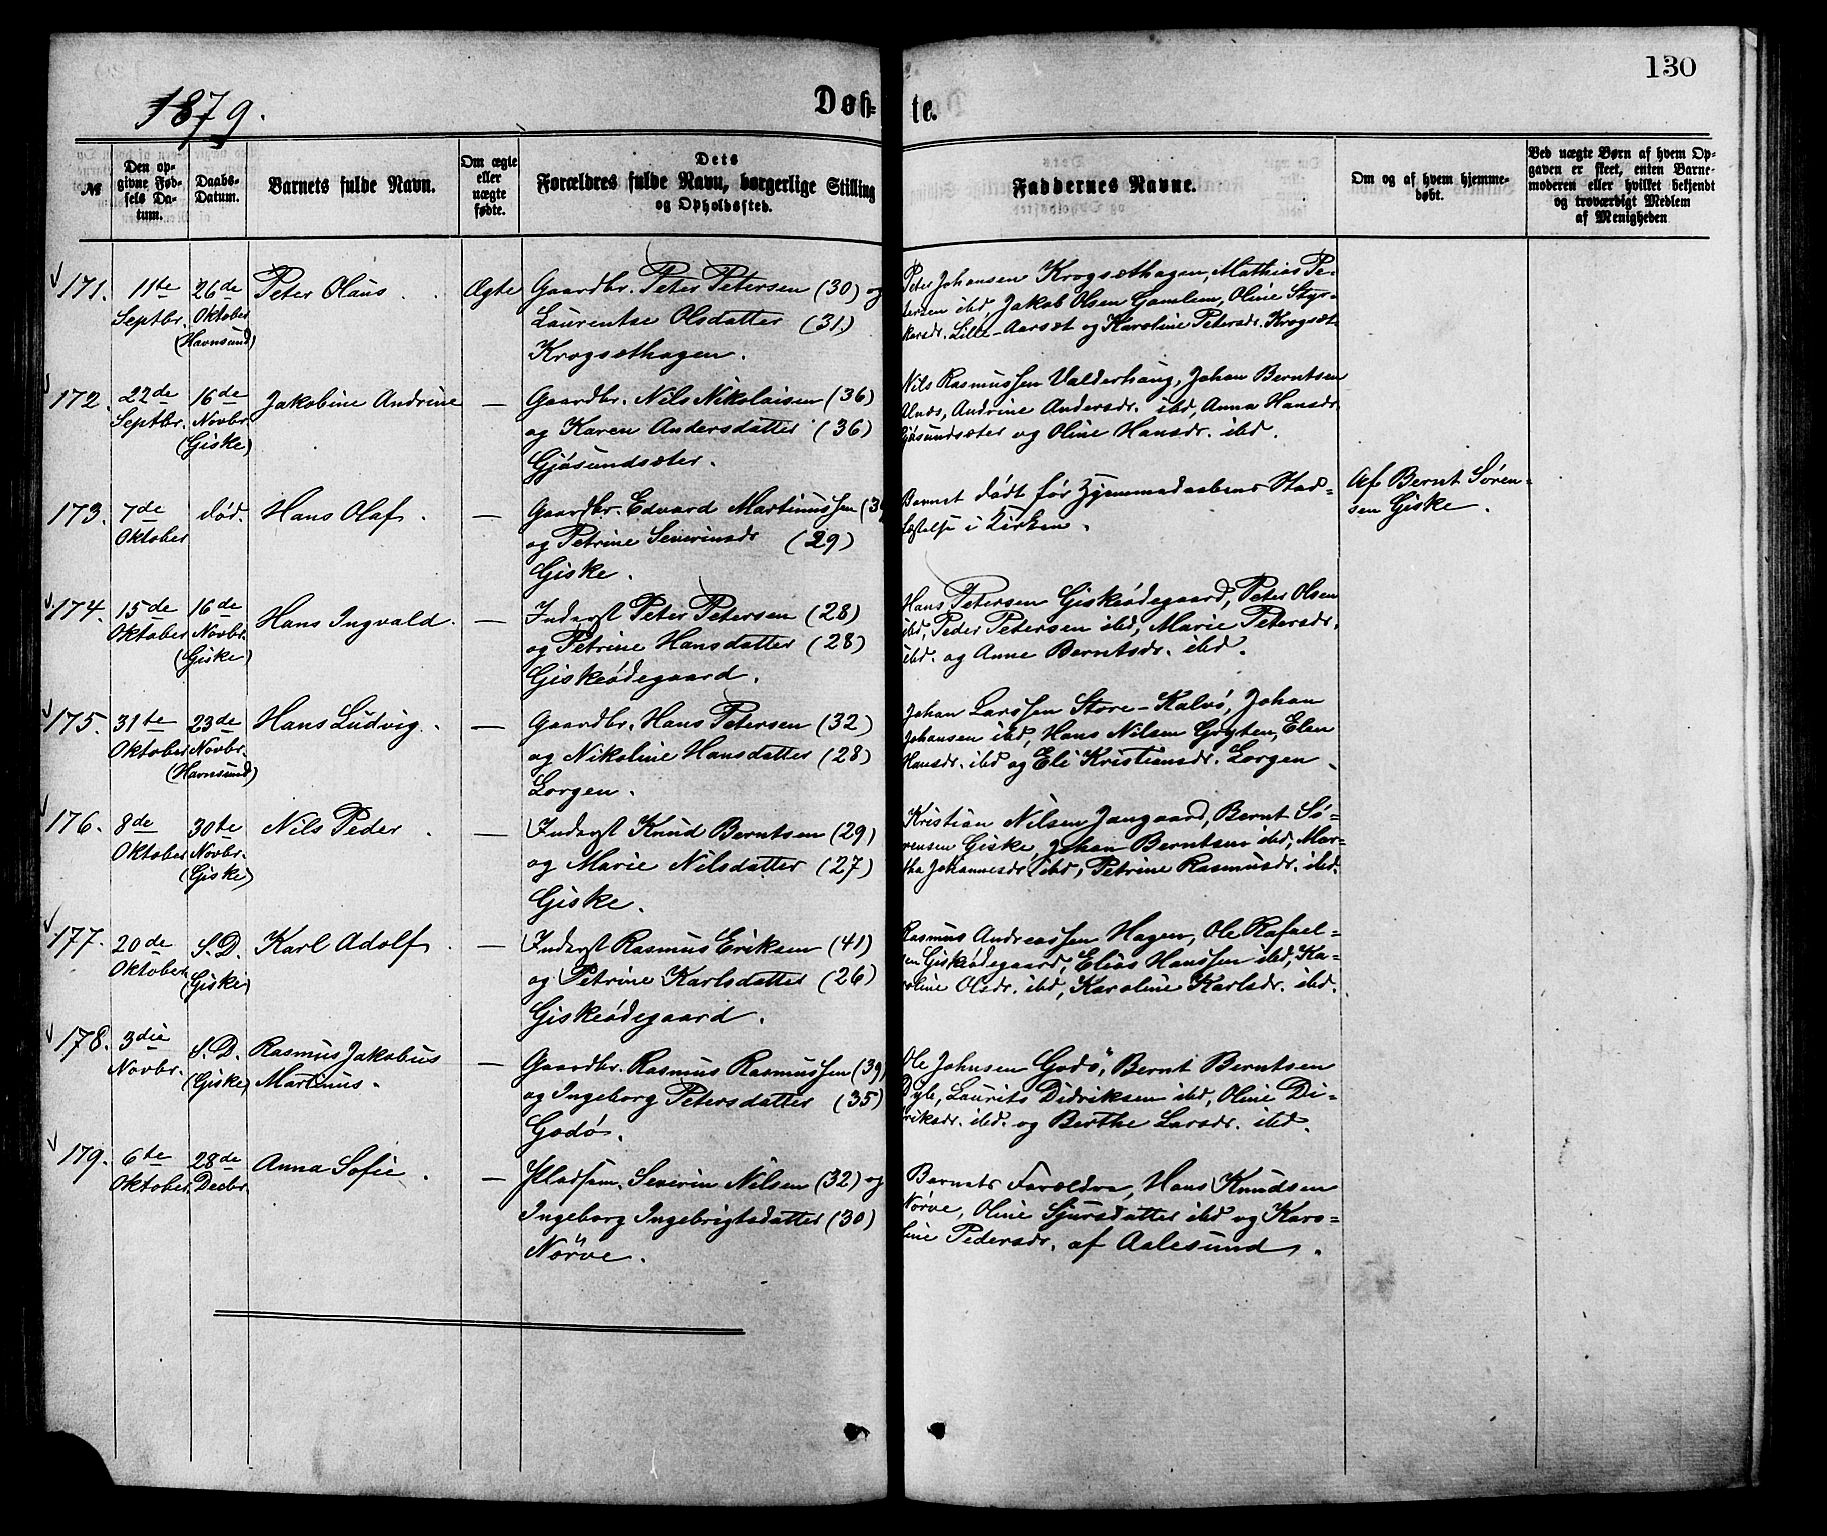 130
1879.
Døb-
te.
№
Den op-
givne Fød-
sels Da-
tum.
Daabs-
Datum.
Barnets fulde Navn.
Om ægte
eller
uægte
fødte.
Dets
Forældres fulde Navn, borgerlige Stilling
og Opholdssted.
Faddernes Navne.
Om og af hvem hjemme-
døbt.
Ved uægte Børn af hvem Op-
gaven er skeet, enten Barne-
moderen eller hvilket bekjendt
og troværdigt Medlem
af Menigheden
171.
11te
Septbr.
26de
Oktober
(Havnsund)
Peter Olaus.
Ægte
Gaardbr. Peter Petersen (30) og
Laurentse Olsdatter (31)
Krogsæthagen.
Peter Johansen Krogsæthagen, Mathias Pe-
tersen ibd, Jakob Olsen Gamlem, Oline Styr-
karsdr. Lille-Aarsæt og Karoline Petersdr. Krogsæt
172.
22de
Septbr.
16de
Novbr.
(Giske)
Jakobine Andrine
—
Gaardbr. Nils Nikolaisen (36)
og Karen Andersdatter (36)
Gjøsundsæter.
Nils Rasmussen Valderhaug, Johan Berntsen
Alnæs, Andrine Andersdr. ibd, Anna Hansdr.
Gjøsundsæter og Oline Hansdr. ibd.
173.
7de
Oktober
død.
Hans Olaf.
—
Gaardbr. Edvard Martinussen
og Petrine Severinsdr (29)
Giske.
Barnet dødt før Hjemmedaabens Stad-
fæstelse i Kirken.
Af Bernt Søren-
sen Giske.
174.
15de
Oktober
16de
Novbr.
(Giske)
Hans Ingvald.
—
Inderst Peter Petersen (28)
og Petrine Hansdatter (28)
Giskeødegaard.
Hans Petersen Giskeødegaard, Peter Olsen
ibd, Peder Petersen ibd, Marie Petersdr.
ibd. og Anne Berntsdr. ibd.
175.
31te
Oktober
23de
Novbr.
(Havnsund)
Hans Ludvig.
—
Gaardbr. Hans Petersen (32)
og Nikoline Hansdatter (28)
Lorgen.
Johan Larssen Store-Kalvø, Johan
Johansen ibd, Hans Nilsen Gryten, Elen
Hansdr. ibd og Eli Kristiansdr. Lorgen.
176.
8de
Oktober
30te
Novbr.
(Giske)
Nils Peder.
—
Inderst Knud Berntsen (29)
og Marie Nilsdatter (27)
Giske.
Kristian Nilsen Jangaard, Bernt Sø-
rensen Giske, Johan Berntsen ibd, Mar-
tha Johannesdr ibd, Petrine Rasmusdr. ibd.
177.
20de
Oktober
S. D.
(Giske)
Karl Adolf.
—
Inderst Rasmus Eriksen (41)
og Petrine Karlsdatter (26)
Giskeødegaard.
Rasmus Andreassen Hagen, Ole Rafael-
sen Giskeødegaard, Elias Hanssen ibd, Ka-
roline Olsdr. ibd, Karoline Karlsdr. ibd.
178.
3die
Novbr.
S. D.
(Giske)
Rasmus Jakobus
Martinus.
—
Gaardbr. Rasmus Rasmussen (39)
og Ingeborg Petersdatter (35)
Godø.
Ole Johnsen Godø, Bernt Berntsen
Dyb, Laurits Didriksen ibd, Oline Di-
driksdr. ibd. og Berthe Larsdr. ibd.
179.
6te
Oktober
28de
Decbr.
Anna Sofie.
—
Pladsm. Severin Nilsen (32) og
Ingeborg Ingebrigtsdatter (30)
Nørve.
Barnets Forældre, Hans Knudsen
Nørve, Oline Sjursdatter ibd og Karo-
line Pedersdr. af Aalesund.